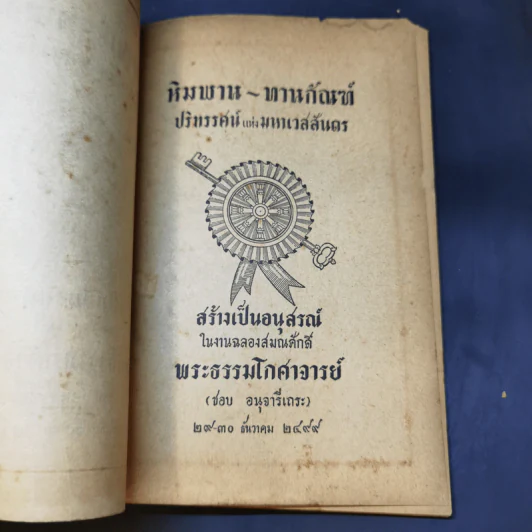 หิมพาน ~ ทานกัณฑ์
ปริทรรศน์ แห่ง มหาเวสสันดร
สร้างเป็นอนุสรณ์
ในงานฉลองสมณศักดิ์
พระธรรมโกศาจารย์
(ชอบ อนุจารีเถระ)
๒๙-๓๐ ธันวาคม ๒๔๙๙